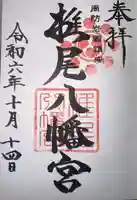 奉拝
椎尾八幡宮
令和六年十月
十四日